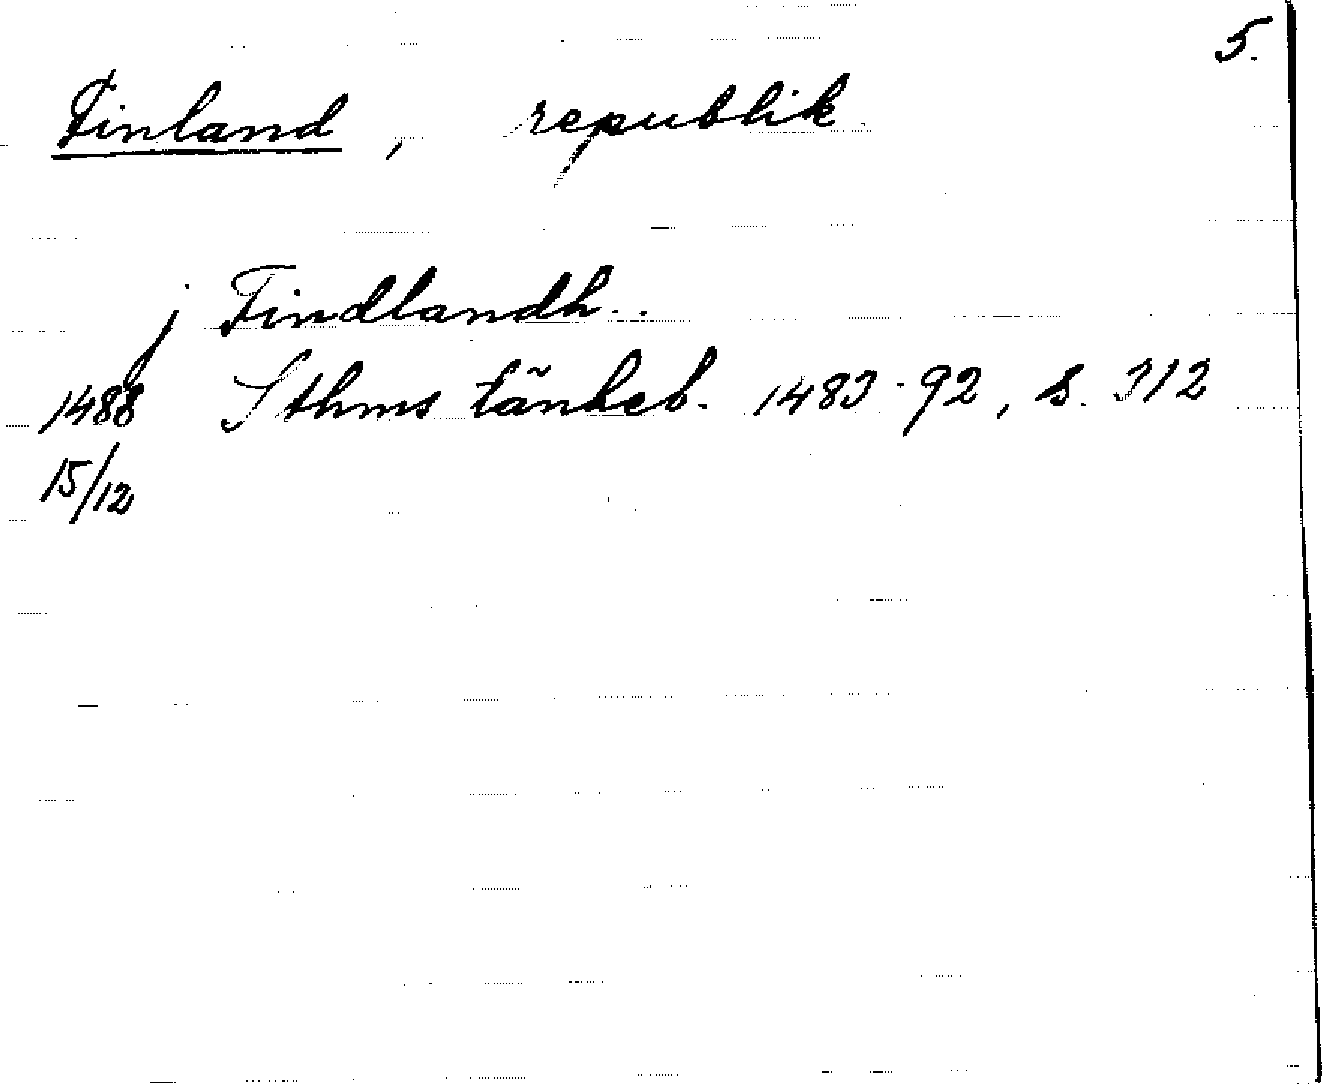 5.
Finland, republik
j Findlandh..
1488 Sthms tänkeb. 1483-92, s. 312
15/12